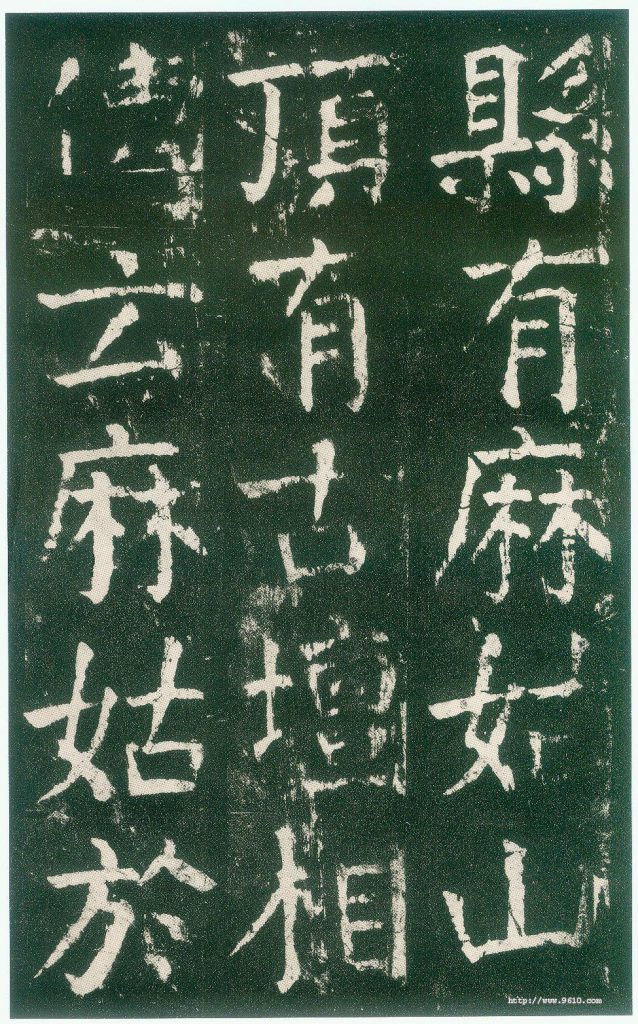 縣有麻姑山
頂有古壇相
傳云麻姑於
http://www.9610.com